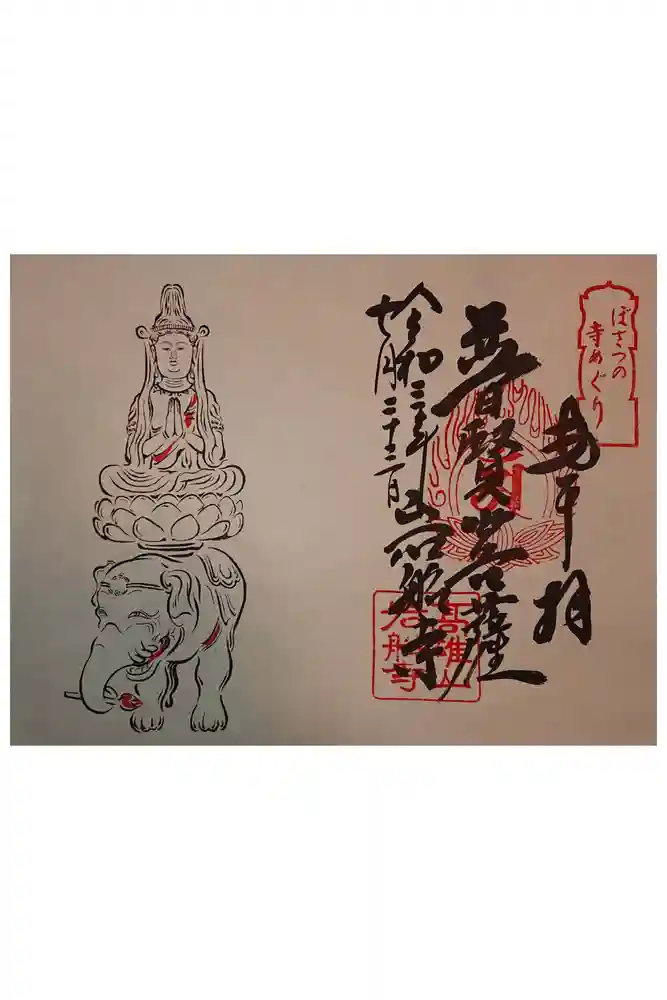 ぼさつの
寺めぐり
奉拝
普賢菩薩
岩船寺
令和三年
七月二十二日
高雄山
岩船寺